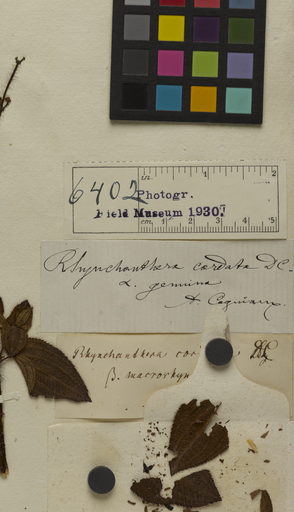 in. 1 2
6402
Photogr.
Field Museum 1930.
cm. 1 2 3 4 5
Rhynchanthera cordata DC.
α. genuina
A. Cogniaux
Rhynchanthera cor DC
β. macrorhyn